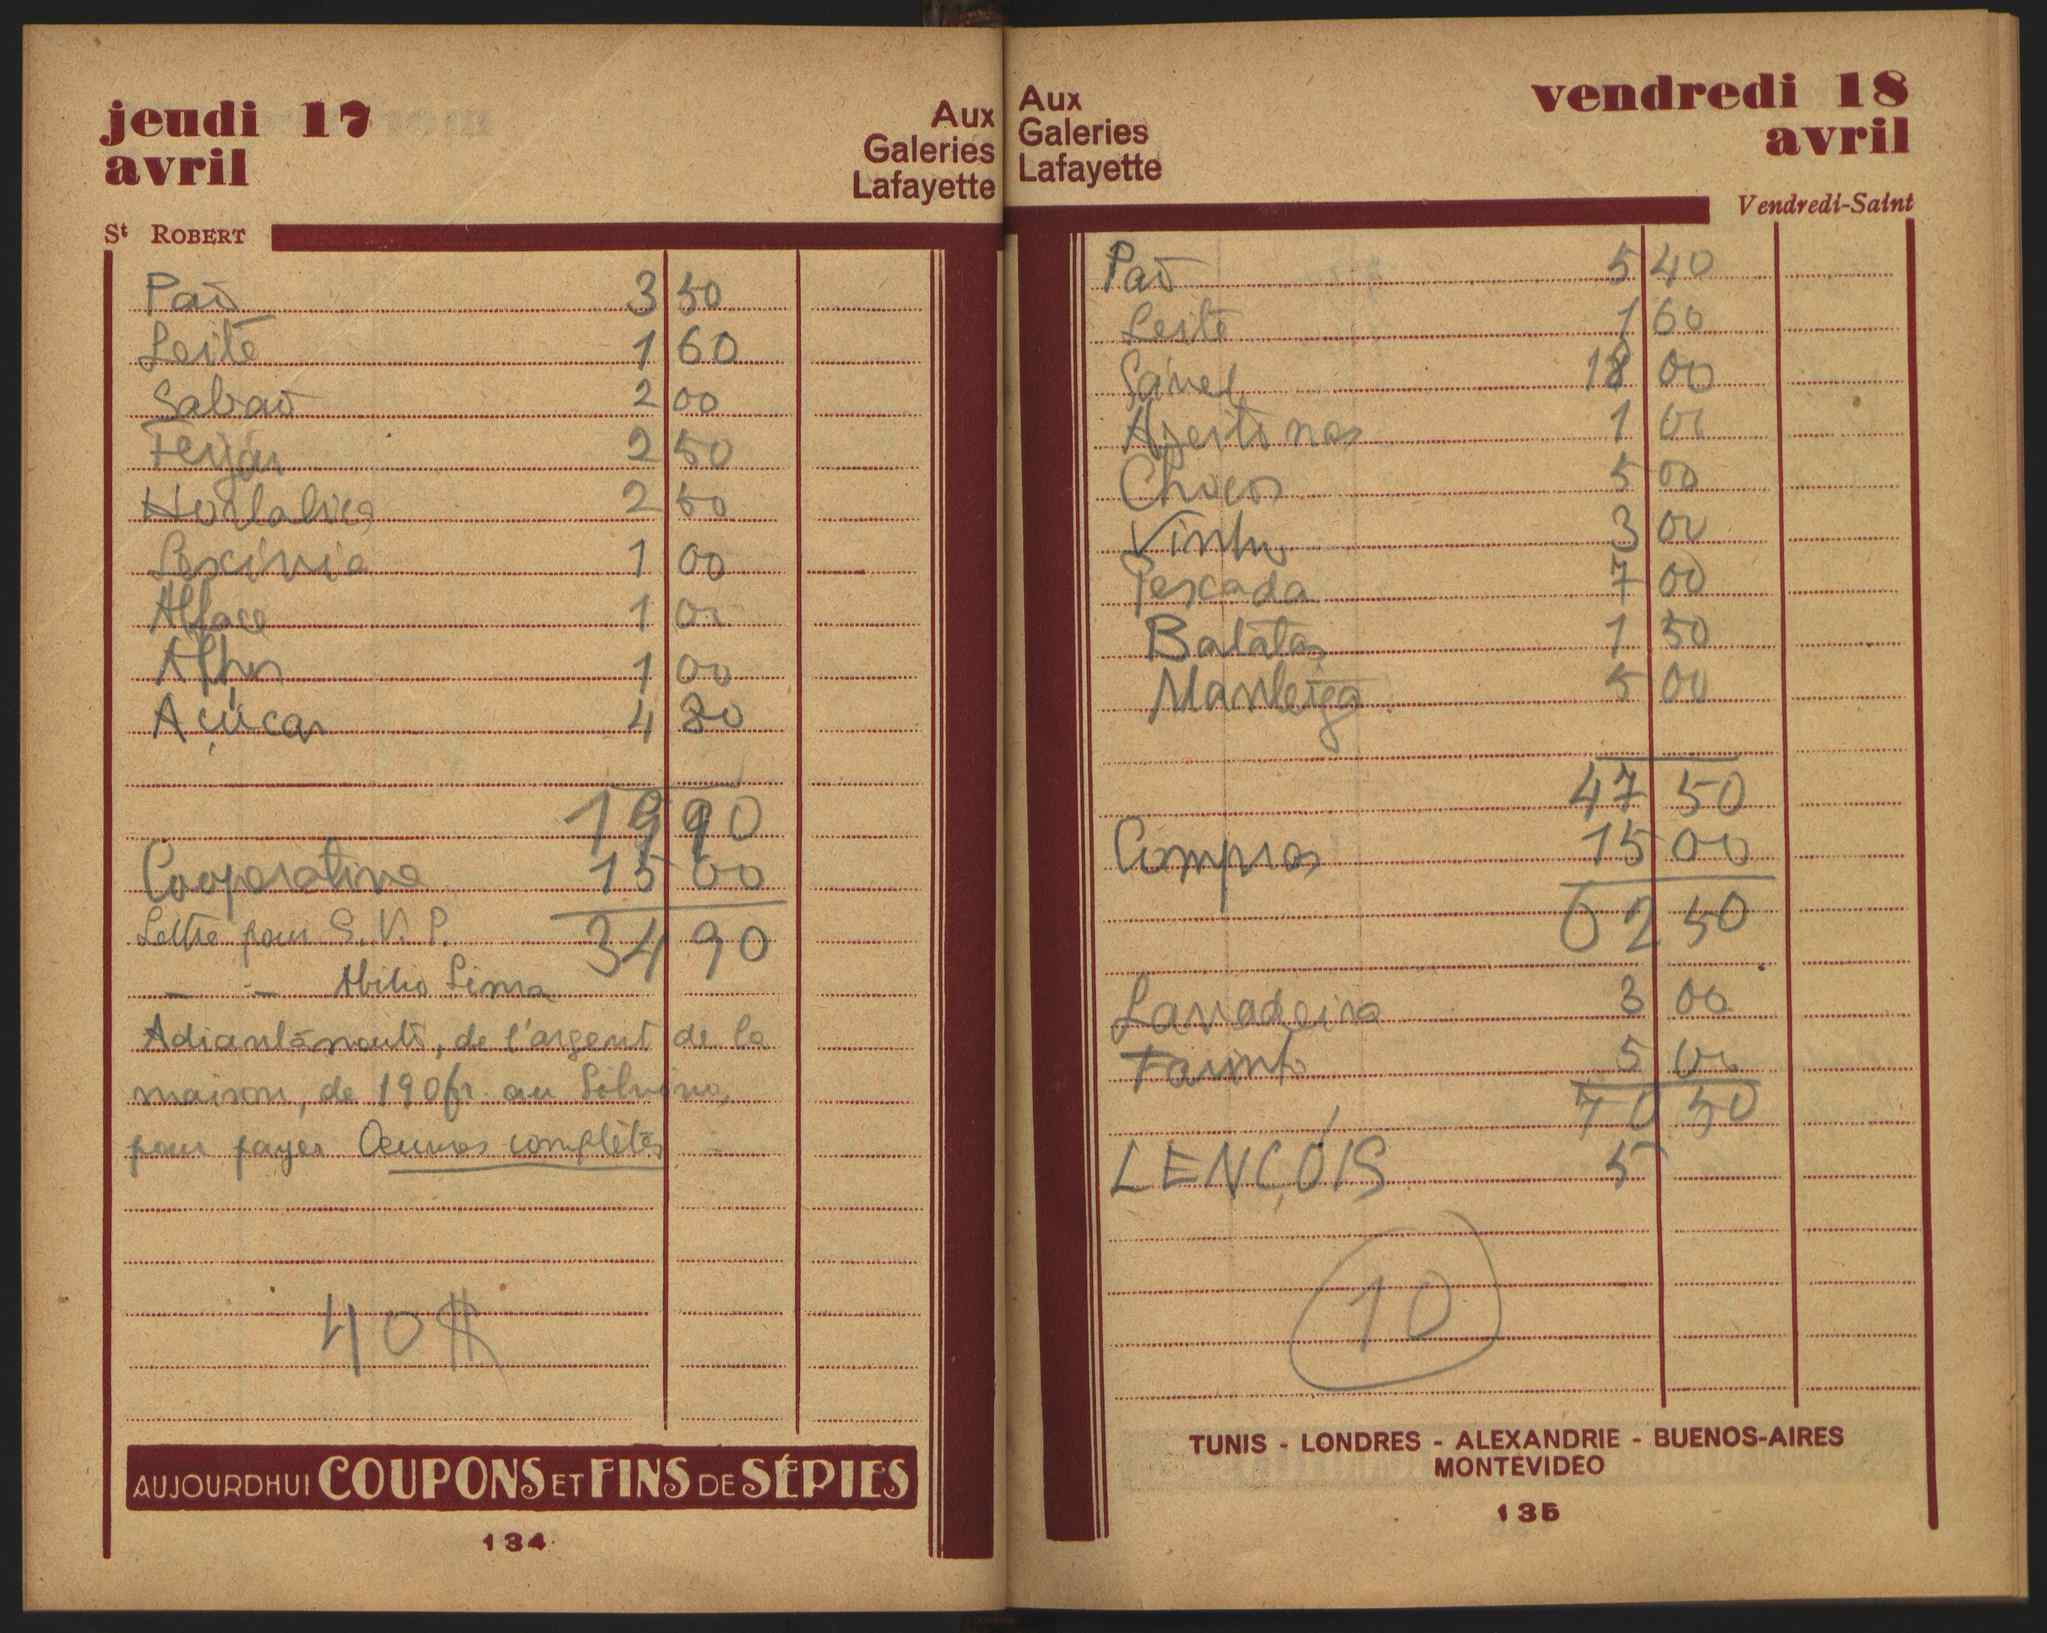 jeudi 17
avril
Aux
Galeries
Lafayette
St ROBERT
Pão 3 50
Leite 1 60
Sabão 2 00
Feijão 2 50
Hortaliça 2 50
Lexívia 1 00
Alface 1 00
Alhos 1 00
Açúcar 4 80
19 90
Cooperativa 15 00
34 90
Lettre pour S.V.P.
— — Abílio Lima
Adiantámouts, de l'argent de la
maison, de 190 fr. au Silvino,
pour payer Œuvres complètes
40$
AUJOURDHUI COUPONS ET FINS DE SÉRIES
134
Aux
Galeries
Lafayette
vendredi 18
avril
Vendredi-Saint
Pão 5 40
Leite 1 60
18 00
Azeitonas 1 00
Chocos 5 00
Vinho 3 00
Pescada 7 00
Batatas 1 50
Manteiga 5 00
47 50
Compras 15 00
62 50
Lavadeira 3 00
5 00
70 50
LENÇÓIS 5
10
TUNIS - LONDRES - ALEXANDRIE - BUENOS-AIRES
MONTÉVIDÉO
135